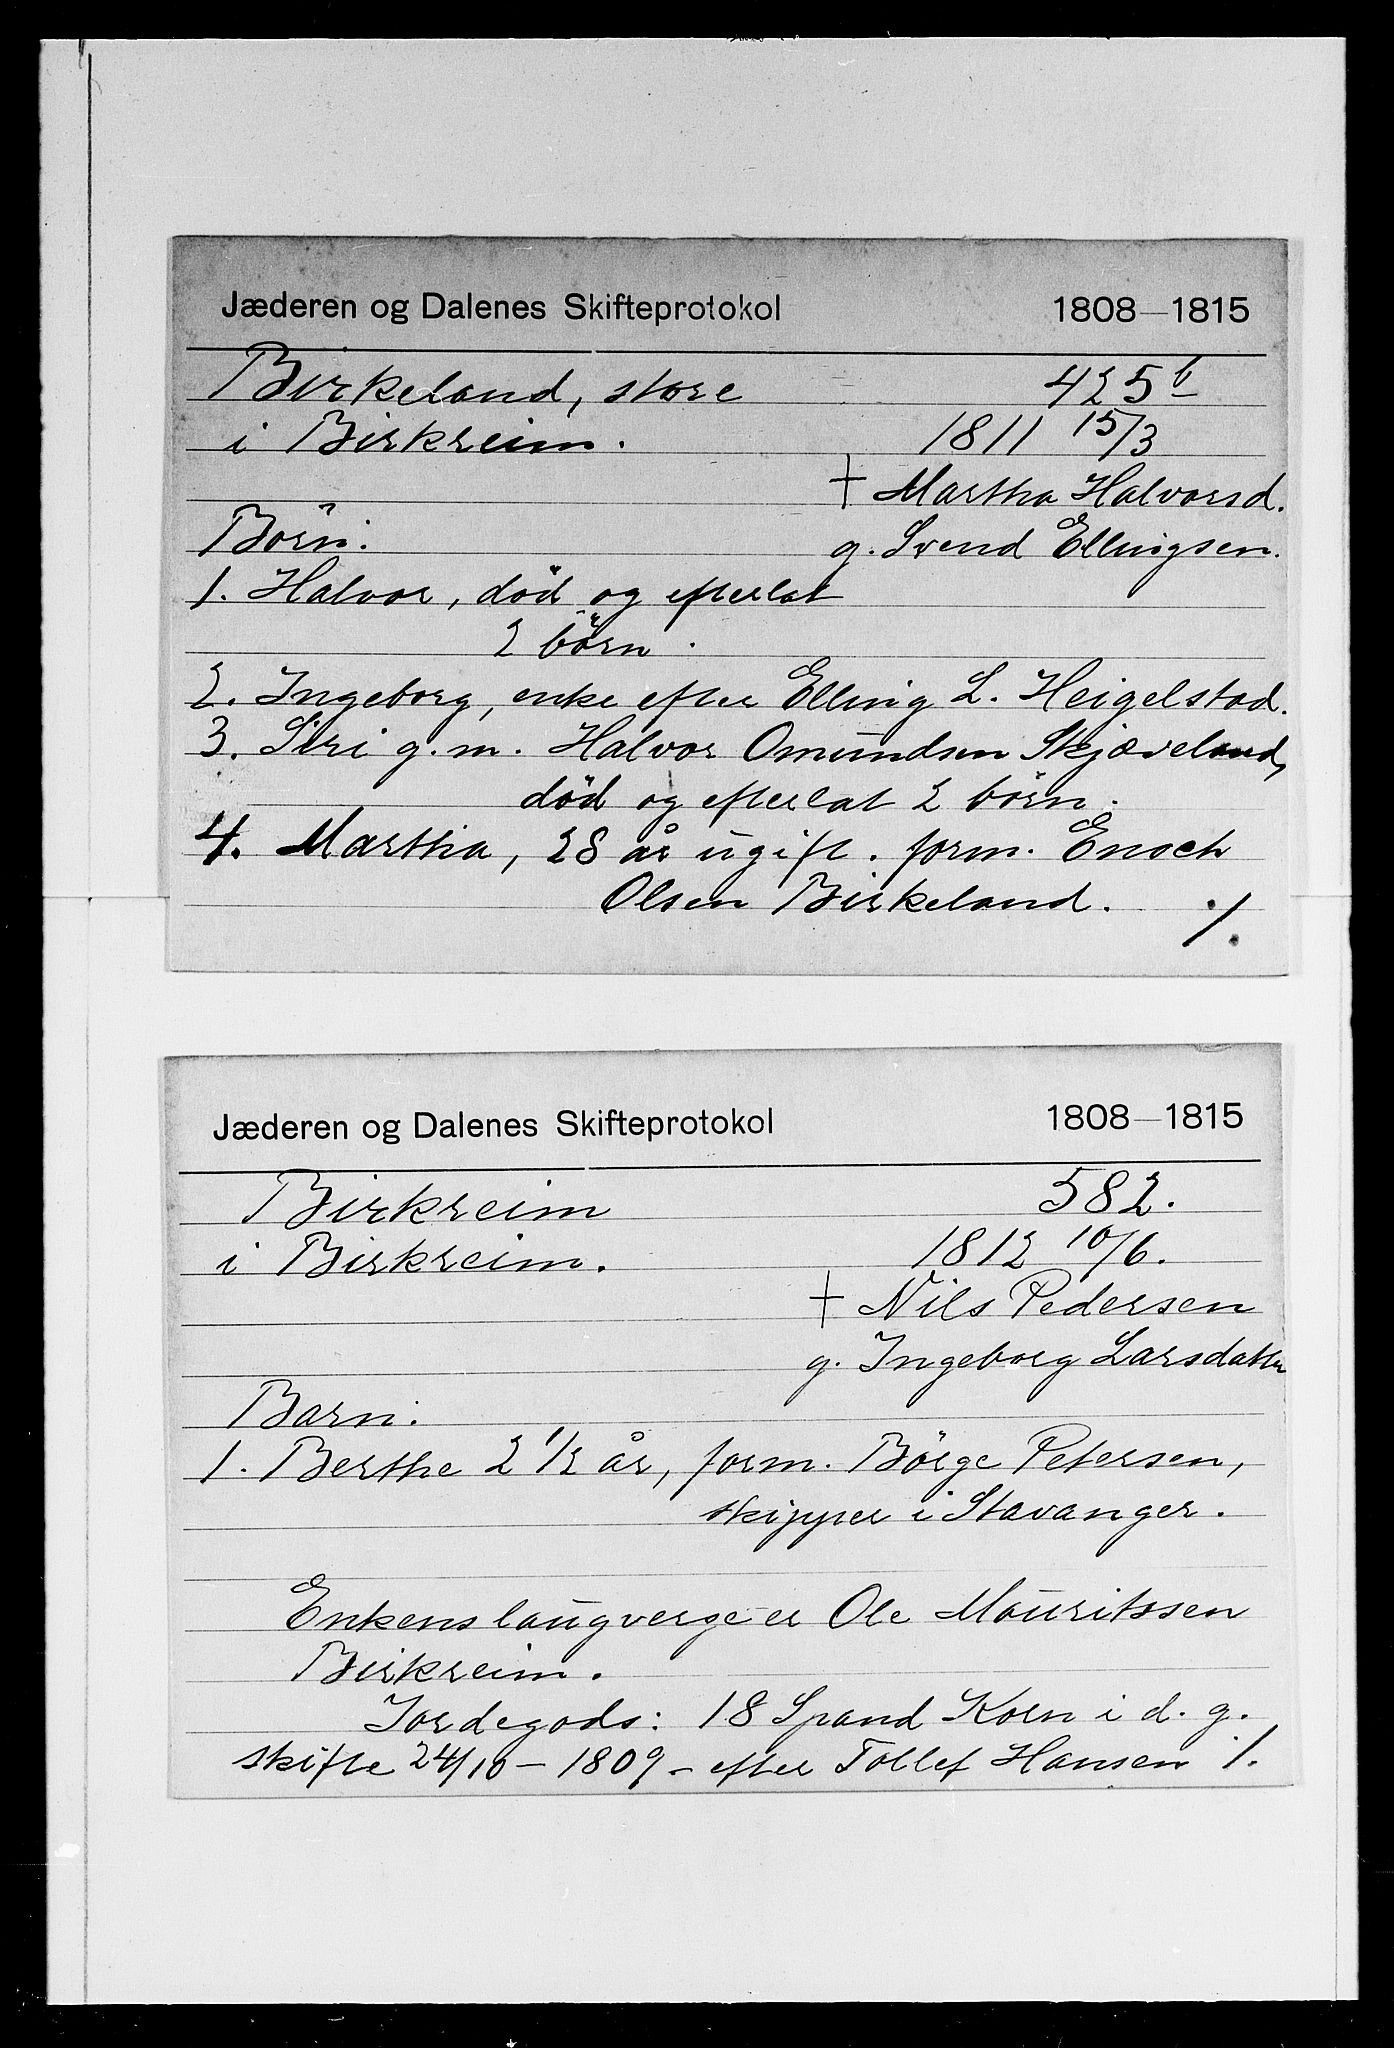 Jæderen og Dalenes Skifteprotokol 1808—1815
Birkeland, store 425 b
i Birkreim. 1811 15/3
† Martha Halvorsd.
Börn: g. Svend Ellingsen.
1. Halvor, död og efterlat
2 börn.
2. Ingeborg, enke efter Elling L. Heigelstad.
3. Siri g.m. Halvor Omundsen Skjæveland,
död og efterlat 2 börn.
4. Martha, 28 år ugift. form. Enoch
Olsen Birkeland. ./.
Jæderen og Dalenes Skifteprotokol 1808—1815
Birkreim 582.
i Birkreim. 1812 10/6.
† Nils Pedersen
g. Ingeborg Larsdatter
Barn:
1. Berthe 2 1/2 år, form. Börge Petersen,
skipper i Stavanger.
Enkens laugverge er Ole Mouritssen
Birkreim.
Jordegods: 18 Spand Korn i d. g.
skifte 24/10 – 1809 – efter Tollef Hansen ./.